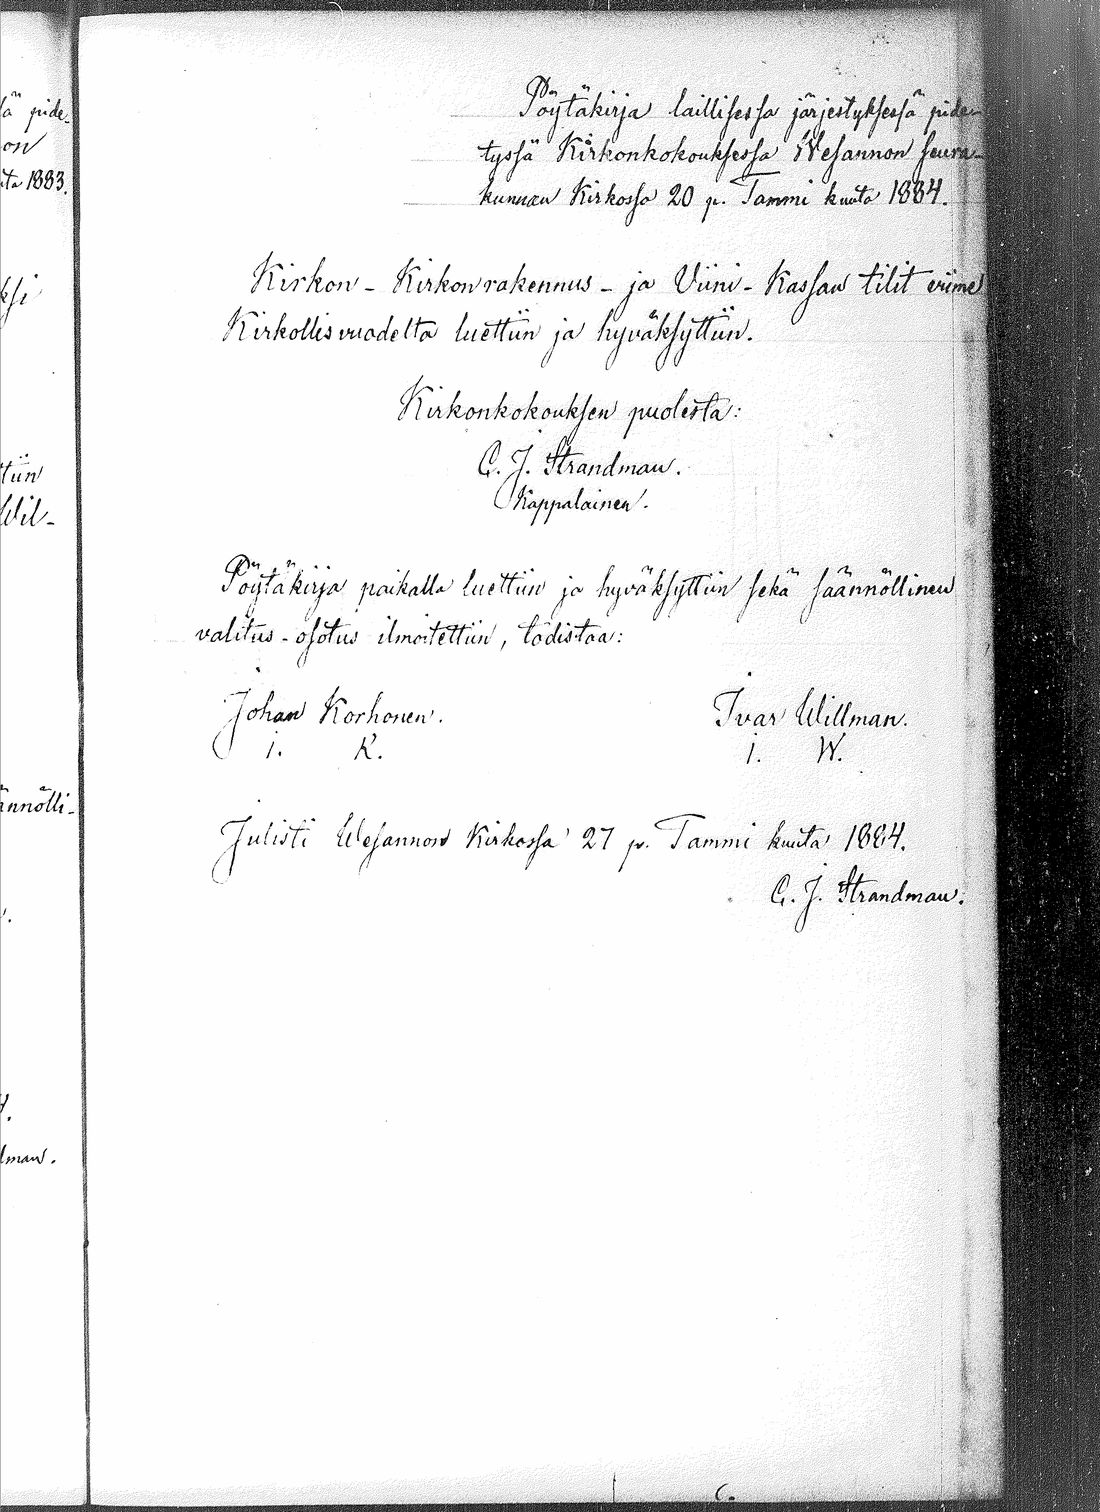 Pöytäkirja laillisessa järjestyksessä pide-
tyssä Kirkonkokouksessa Wesannon seura-
kunnan Kirkossa 20 p. Tammi kuuta 1884.
Kirkon - Kirkonrakennus - ja Viini - Kassan tilit viime
Kirkollisvuodelta luettiin ja hyväksyttiin.
Kirkonkokouksen puolesta:
C. J. Strandman.
Kappalainen.
Pöytäkirja paikalla luettiin ja hyväksyttiin sekä säännöllinen
valitus-osotus ilmoitettiin, todistaa:
Johan Korhonen. Ivar Willman.
I. K. I. W.
Julisti Wesannon Kirkossa 27 p. Tammi kuuta 1884.
C. J. Strandman.